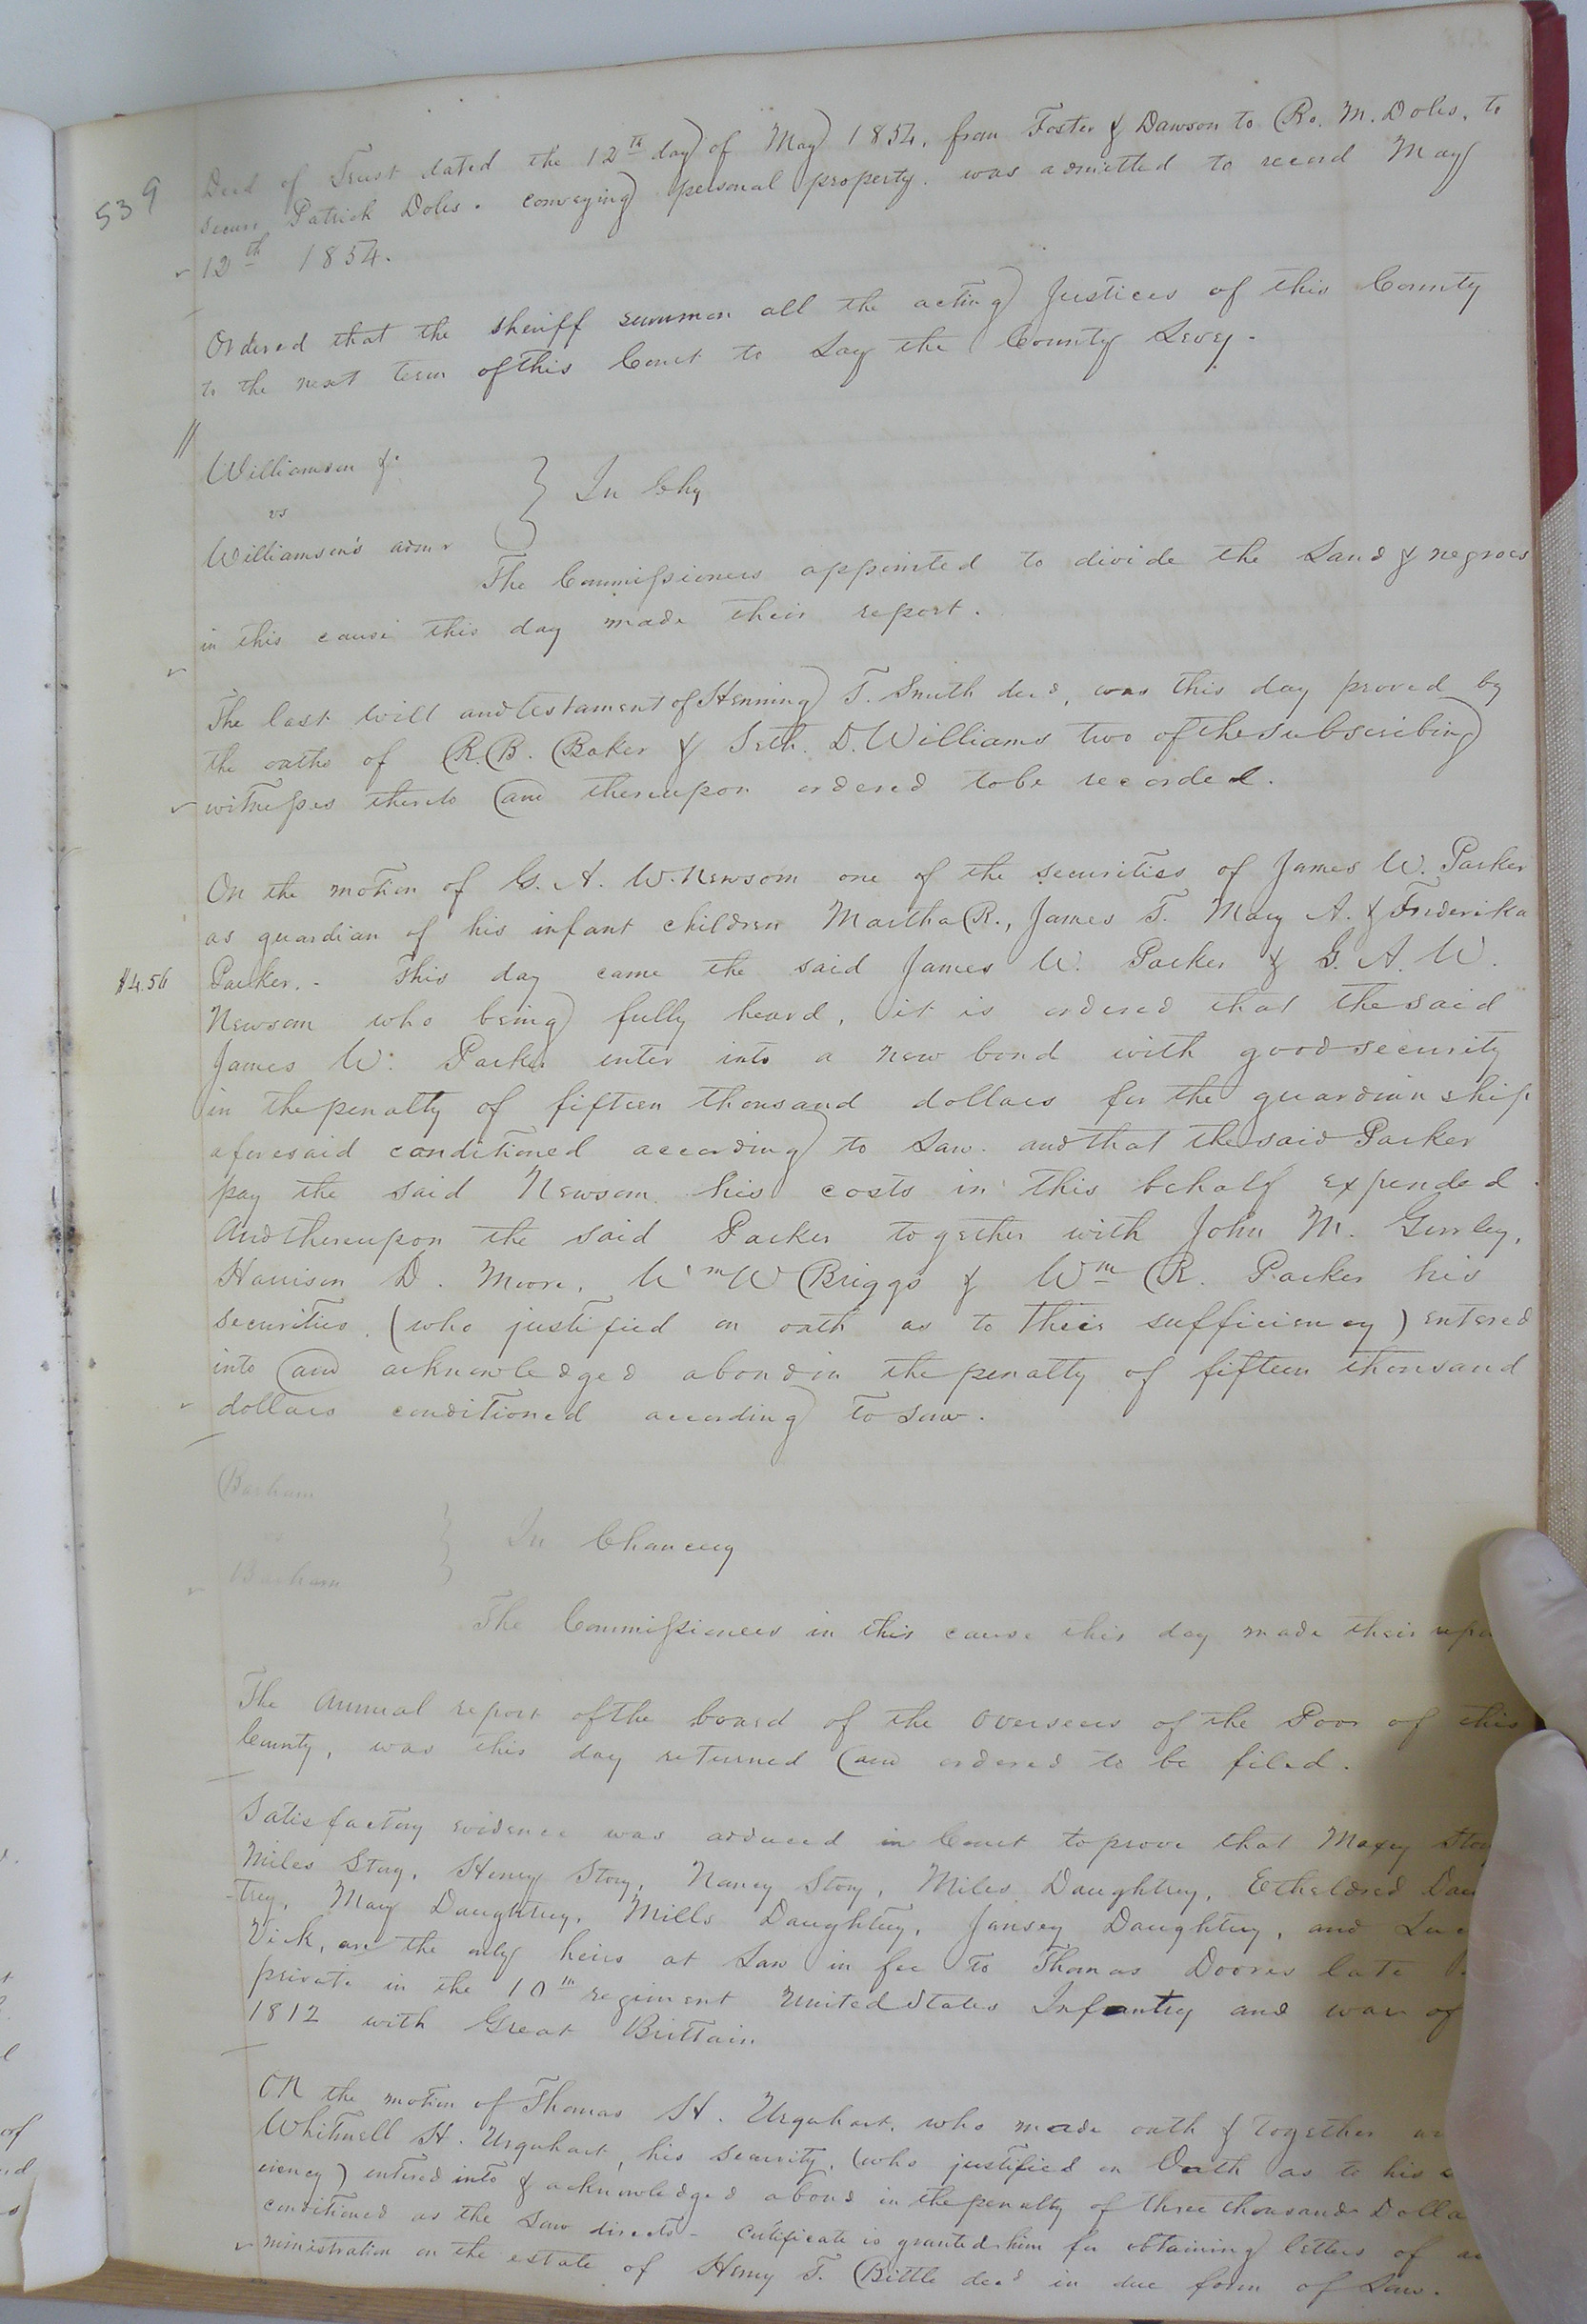 539
Deed of Trust dated the 12th day of May 1854, from Foster & Dawson to Ro. M. Doles, to
secure Patrick Doles. conveying personal property. was admitted to record May
12th 1854.
Ordered that the sheriff summon all the acting Justices of this County
to the next term of this Court to Lay the County Levy.
Williamson &c
vs
Williamson's admr
In Chy
The Commissioners appointed to divide the Land & negroes
in this cause this day made their report.
The last will and testament of Henning T. Smith decd, was this day proved by
the oaths of R. B. Baker & Seth. D. Williams two of the subscribing
witnesses thereto and thereupon ordered to be recorded.
On the motion of G. A. W. Newsom one of the securities of James W. Parker
as guardian of his infant children Martha R., James T. Mary A. & Frederika
$4.56
Parker. - This day came the said James W. Parker & G. A. W.
Newsom who being fully heard, it is ordered that the said
James W. Parker enter into a new bond with good security
in the penalty of fifteen thousand dollars for the guardianship
aforesaid conditioned according to Law. and that the said Parker
pay the said Newsom his costs in this behalf expended.
And thereupon the said Parker together with John M. Gurley,
Harrison D. Moore, Wm W Briggs & Wm R. Parker his
securities, (who justified on oath as to their sufficiency) entered
into and acknowledged a bond in the penalty of fifteen thousand
dollars conditioned according to Law.
Barham
Barham
In Chancery
The Commissioners in this cause this day made their repo
The Annual report of the board of the Overseers of the Poor of this
County, was this day returned and ordered to be filed.
Satisfactory evidence was adduced in Court to prove that Maxey Story
Miles Story, Henry Story, Nancy Story, Miles Daughtrey, Etheldred Dau
-trey, Mary Daughtrey, Mills Daughtrey, Jansey Daughtrey, and
Vick, are the only heirs at Law in fee to Thomas Doores late
private in the 10th regiment United States Infantry and war of
1812 with Great Brittain
On the motion of Thomas H. Urquhart, who made oath & together
Whitmell H. Urquhart, his security, (who justified on Oath as to his
ciency) entered into & acknowledged a bond in the penalty of three thousand Dolla
conditioned as the Law directs - Certificate is granted him for obtaining letters of ad
ministration on the estate of Henry T. Bittle decd in due form of Law.